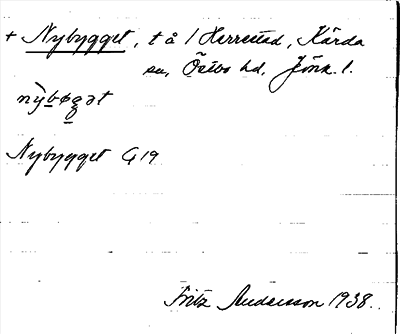 + Nybygget, t å 1 Herrestad, Kärda
sn, Östbo hd, Jönk. l.
nỳbøgət
Nybygget G 19
Fritz Andersson 1938.